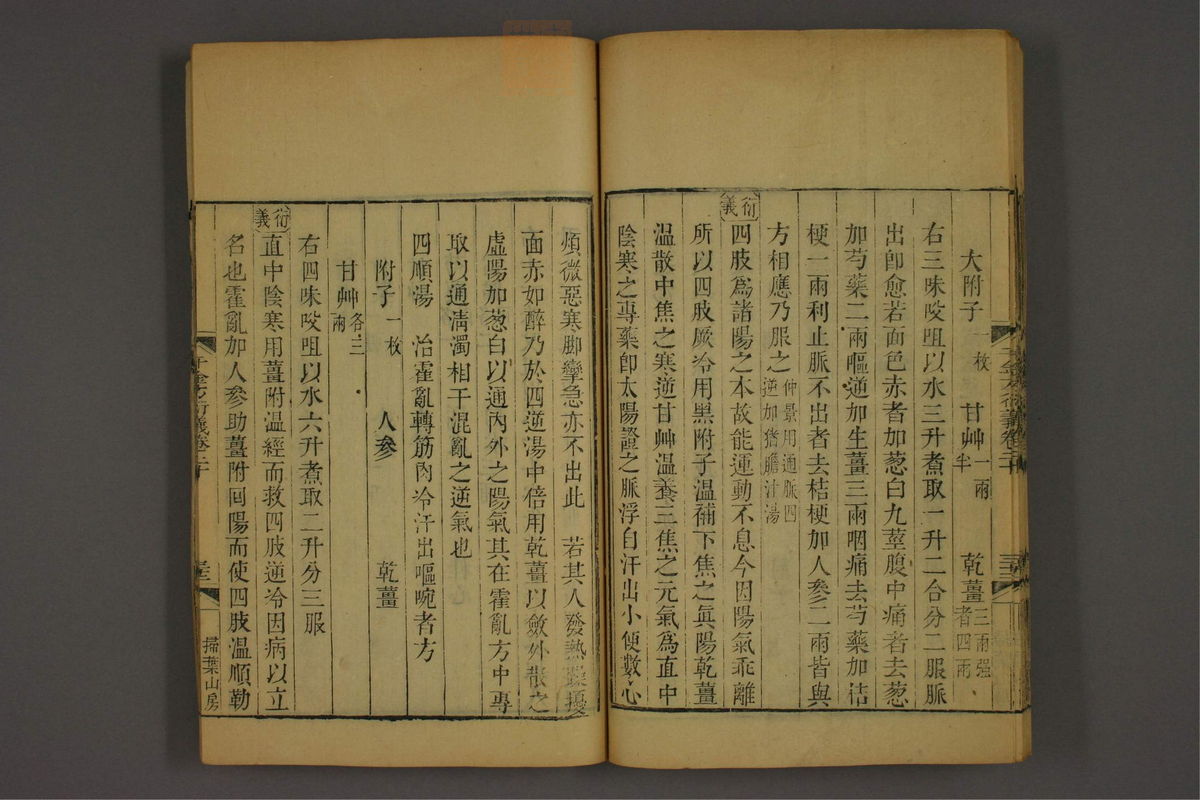 大附子一枚 甘艸一兩半 乾薑三兩强者四兩
右三味㕮咀以水三升煮取一升二合分二服脈
出卽愈若面色赤者加葱白九莖腹中痛者去葱
加芍藥二兩嘔逆加生薑三兩咽痛去芍藥加桔
梗一兩利止脈不出者去桔梗加人參二兩皆與
方相應乃服之仲景用通脈四逆加猪膽汁湯
衍義
四肢爲諸陽之本故能運動不息今因陽氣乖離
所以四肢厥冷用黑附子溫補下焦之眞陽乾薑
溫散中焦之寒逆甘艸溫養三焦之元氣爲直中
陰寒之專藥卽太陽證之脈浮自汗出小便數心
煩微惡寒脚攣急亦不出此 若其人發熱躁擾
面赤如醉乃於四逆湯中倍用乾薑以斂外散之
虛陽加葱白以通內外之陽氣其在霍亂方中專
取以通淸濁相干混亂之逆氣也
四順湯 治霍亂轉筋肉冷汗出嘔啘者方
附子一枚 人參 乾薑
甘艸各三兩
右四味㕮咀以水六升煮取二升分三服
衍義
直中陰寒用薑附溫經而救四肢逆冷因病以立
名也霍亂加人參助薑附回陽而使四肢溫順勒
千金方衍義卷二十
掃葉山房